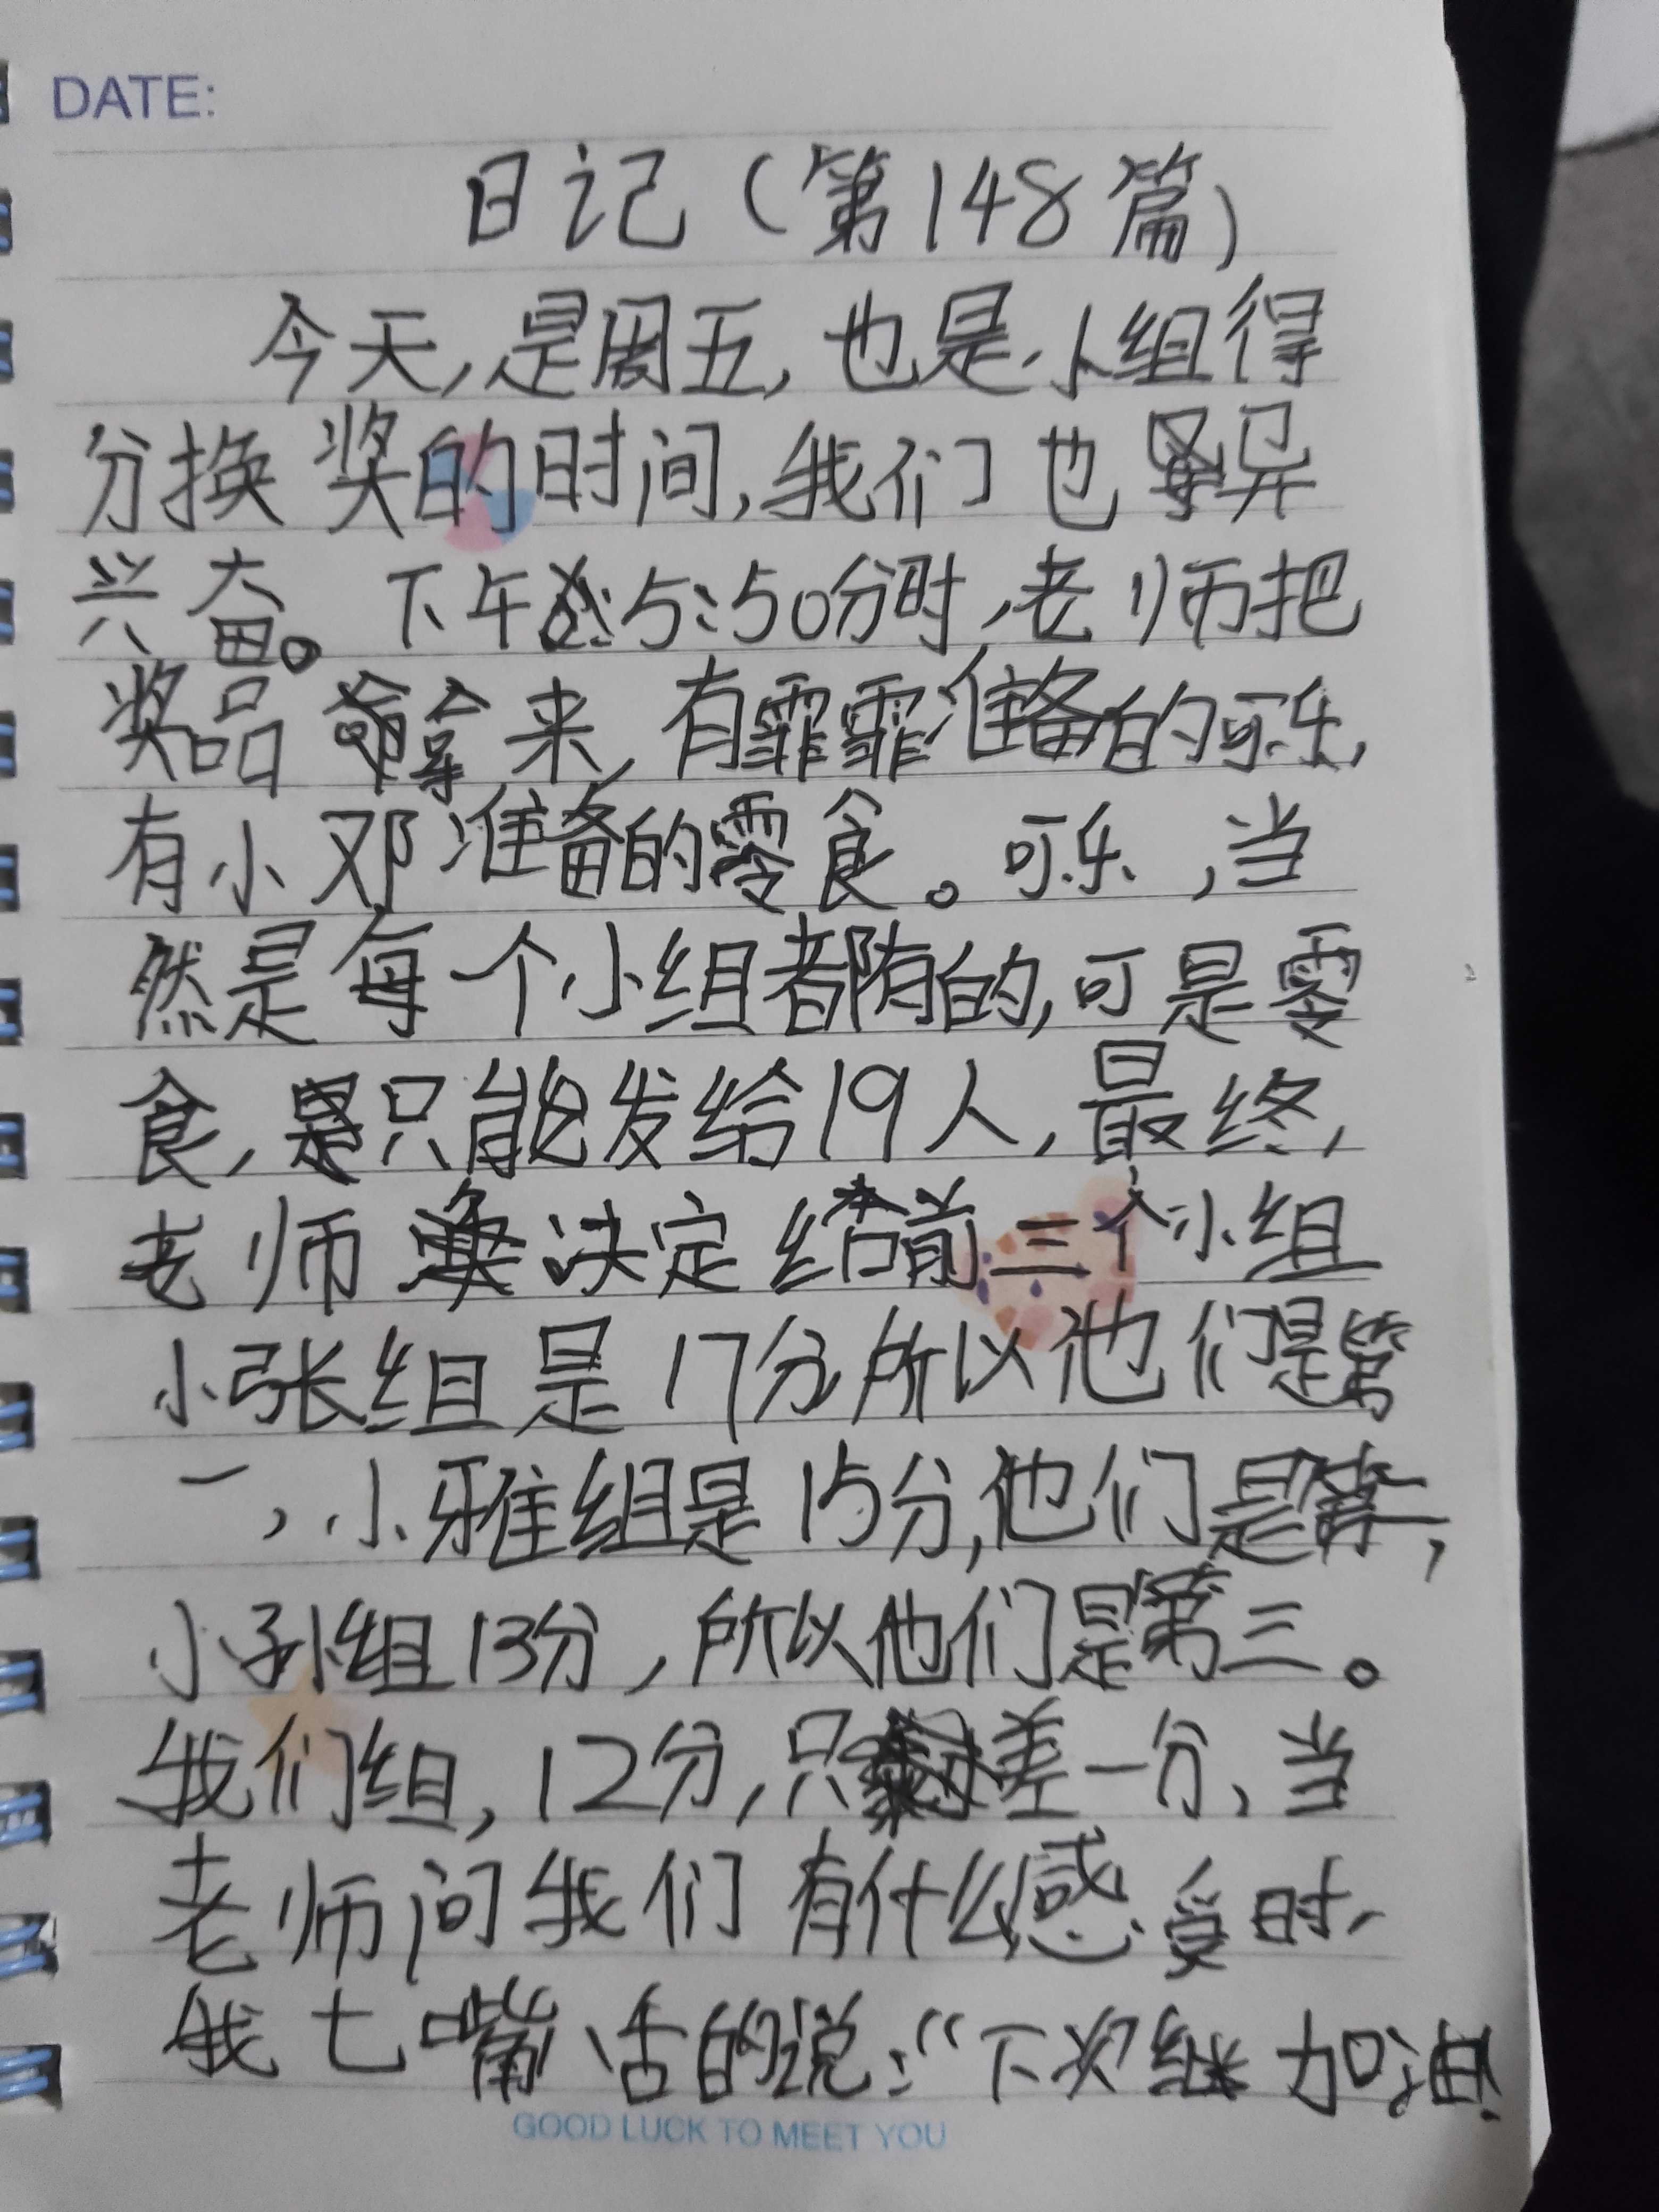 DATE:
日记（第148篇）
今天,是周五,也是小组得
分换奖的时间,我们也异
兴奋。下午5:50分时,老师把
奖品拿来,有霏霏准备的可乐,
有小邓准备的零食。可乐,当
然是每个小组都有的,可是零
食,是只能发给19人,最终,
老师决定给前三个小组
小张组是17分所以他们是第
一,小雅组是15分,他们是第二,
小孙组13分,所以他们是第三。
我们组,12分,只差一分,当
老师问我们有什么感受时,
我七嘴舌的说:“下次继加油!
GOOD LUCK TO MEET YOU